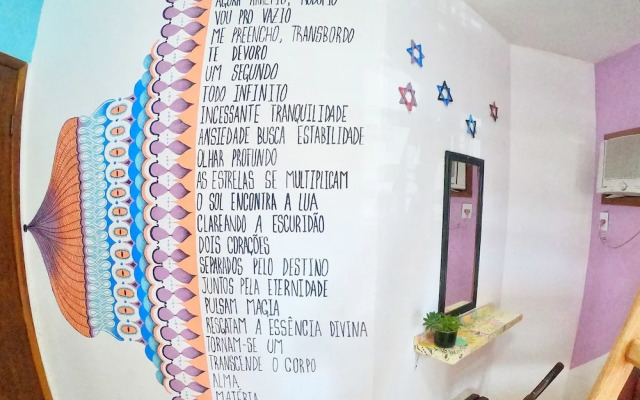 VOU PRO VAZIO
ME PREENCHO, TRANSBORDO
TE DEVORO
UM SEGUNDO
TODO INFINITO
INCESSANTE TRANQUILIDADE
ANSIEDADE BUSCA ESTABILIDADE
OLHAR PROFUNDO
AS ESTRELAS SE MULTIPLICAM
O SOL ENCONTRA A LUA
CLAREANDO A ESCURIDÃO
DOIS CORAÇÕES
SEPARADOS PELO DESTINO
JUNTOS PELA ETERNIDADE
PULSAM MAGIA
RESGATAM A ESSÊNCIA DIVINA
TORNAM-SE UM
TRANSCENDE O CORPO
ALMA
MATÉRIA